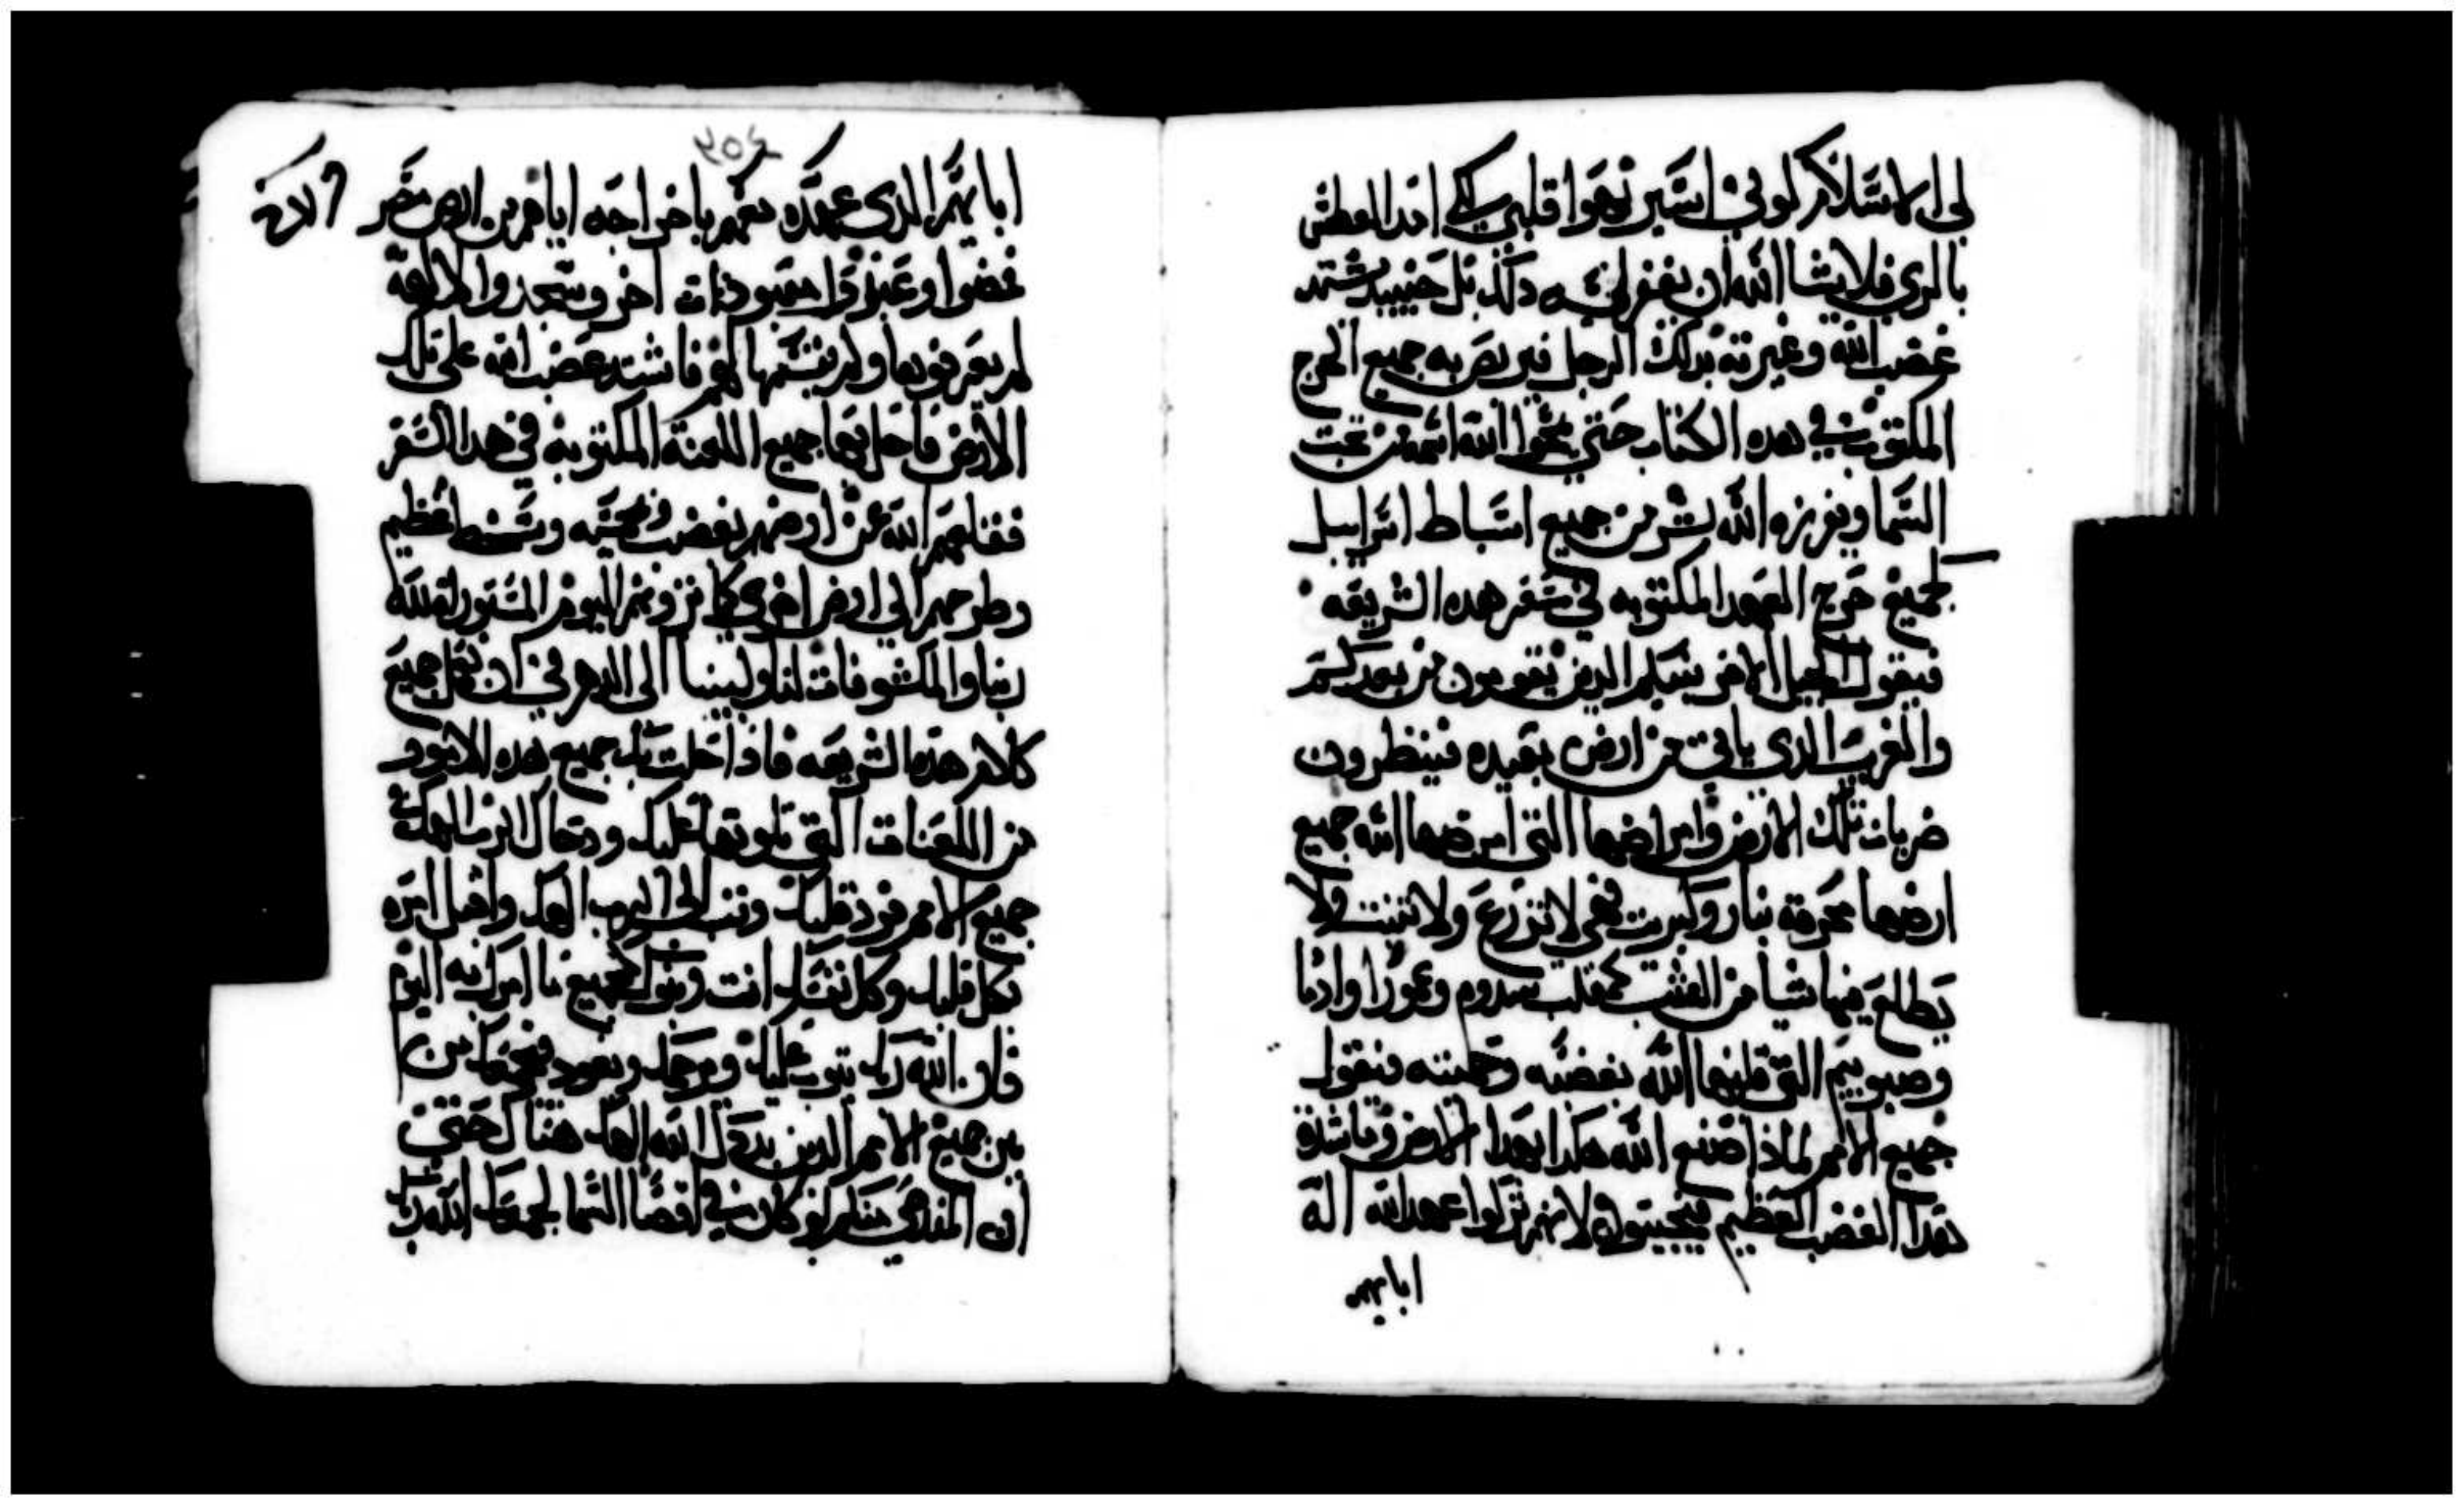 لي الاسلام لوني اسير نهوا قلبي لكي اخد العطش
بالري فلا يشا الله ان يغفر له دلك بل حينيد يشتد
غضب الله وغيرته بدلك الرجل فيربص به جميع الحرج
المكتوبه في هده الكتاب حتي يمحوا الله اسمه من تحت
السما ويفرزه الله بشر من جميع اسباط اسراييل
كجميع حرج العهد المكتوبه في سفر هده الشريعه
فيقول الجيل الاخر بنيكم الدين يقومون من بعدكم
والغريب الدي ياتي من ارض بعيده فينظرون
ضربات تلك الارض وامراضها التي امرضها الله جميع
ارضها محرقه بنار وكبريت فهي لا تزرع ولا تنبت ولا
يطلع فيها شيا من العشب كمقلب سدوم وعمورا وادما
وصبوييم التي قلبها الله بغضبه وحميته فيقول
جميع الامم لمادا صنع الله هكدا بهدا الارض وما شدة
هدا الغضب العظيم فيجيبون لانهم تركوا عهد الله اله
ابايهم
٢٥٤
ابايهم الدي عهده معهم باخراجه اياهم من ارض مصر
فمضوا وعبدوا معبودات اخر وسجدوا لالهة
لم يعرفونها ولم يقسمها لهم فاشتد غضب الله على تلك
الارض فاحل بها جميع اللعنة المكتوبة في هدا السفر
فقلعهم الله عن ارضهم بغضب وحميه وسخط عظيم
وطرحهم الي ارض اخري كما ترونهم اليوم المستورات لله
ربنا والمكشوفات لنا ولبنينا الى الدهر في ان نعمل جميع
كلام هده الشريعه فاذا حلت بك جميع هده الامور
من اللعنات التي تلوتها عليك ودحاك الرب الهك في
جميع الامم فرد قلبك وتب الى الرب الهك واقبل امره
بكل قلبك وكل نفسك انت وبنوك كجميع ما امرك به اليوم
فان الله ربك يتوب عليك ويرحمك ويعود فيجمعك من
من جميع الامم الدين بددك الله الهك هناك حتى
ان المنفي منكم لو كان في اقصا السما ليجمعك الله ربك